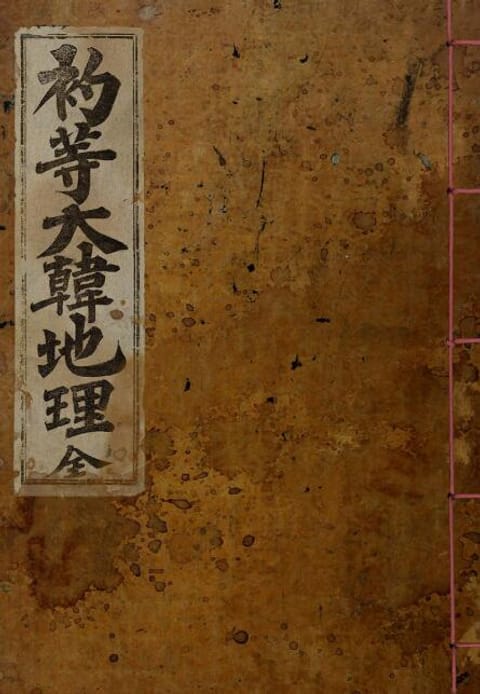 初等大韓地理全